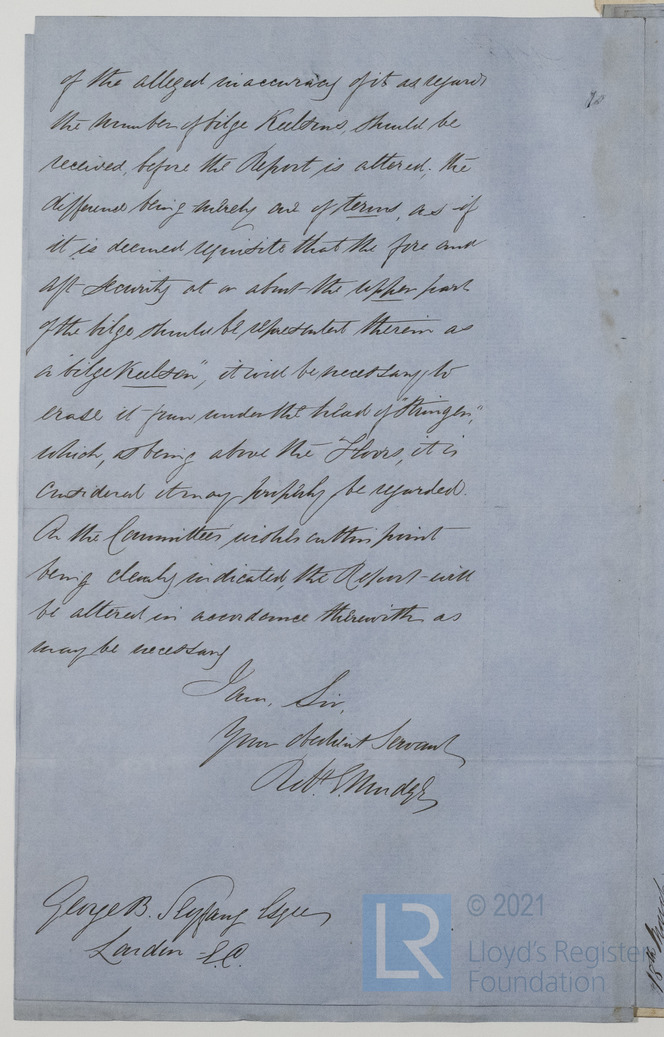 of the alleged inaccuracy of it as regards
the number of bilge Keelsons, should be
received, before the Report is altered; the
difference being merely one of terms, as if
it is deemed requisite that the fore and
aft security at or about the upper part
of the bilge should be represented therein as
a "bilge Keelson", it will be necessary to
erase it from under the head of "Stringers,"
which, as being above the Floors, it is
considered it may properly be regarded.
On the Committee's wishes on this point
being clearly indicated, the Report will
be altered in accordance therewith as
may be necessary
I am, Sir,
Your obedient Servant
Robt. Mudge
George B. Seyfang Esqre
London E.C.
LR
© 2021
Lloyd's Register
Foundation